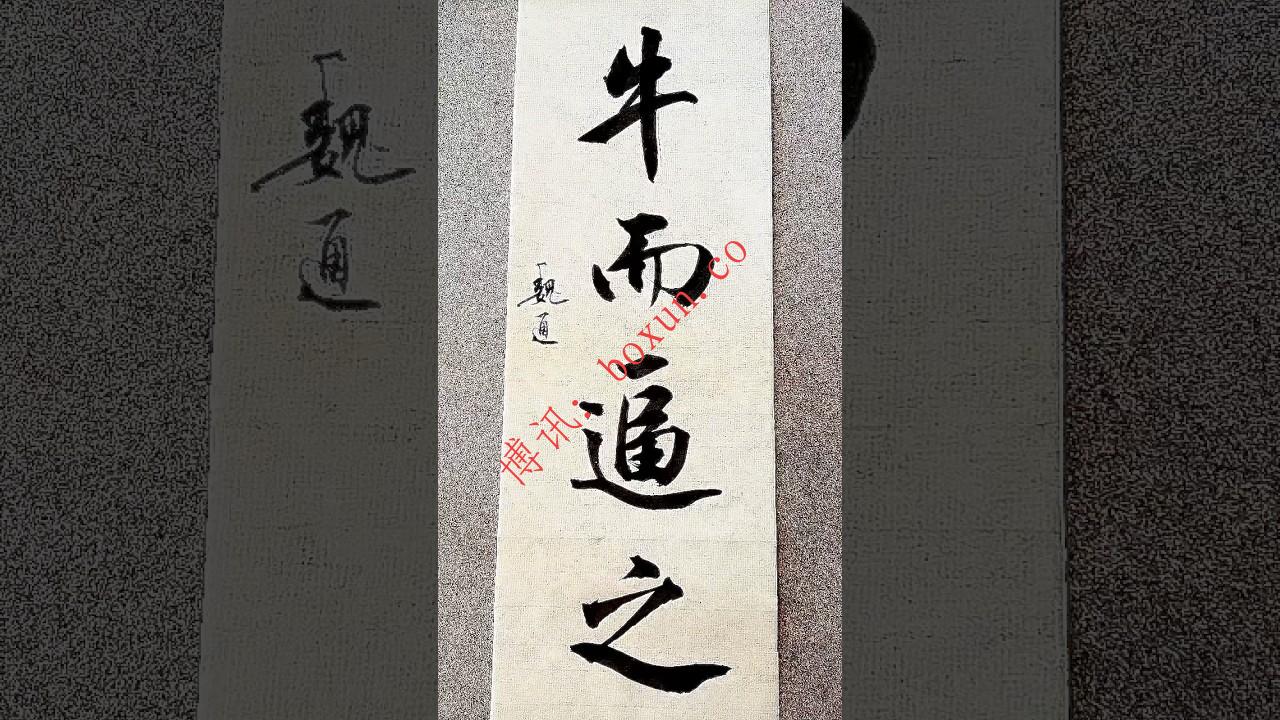 牛而逼之
魏通
博讯：boxun.co
魏通